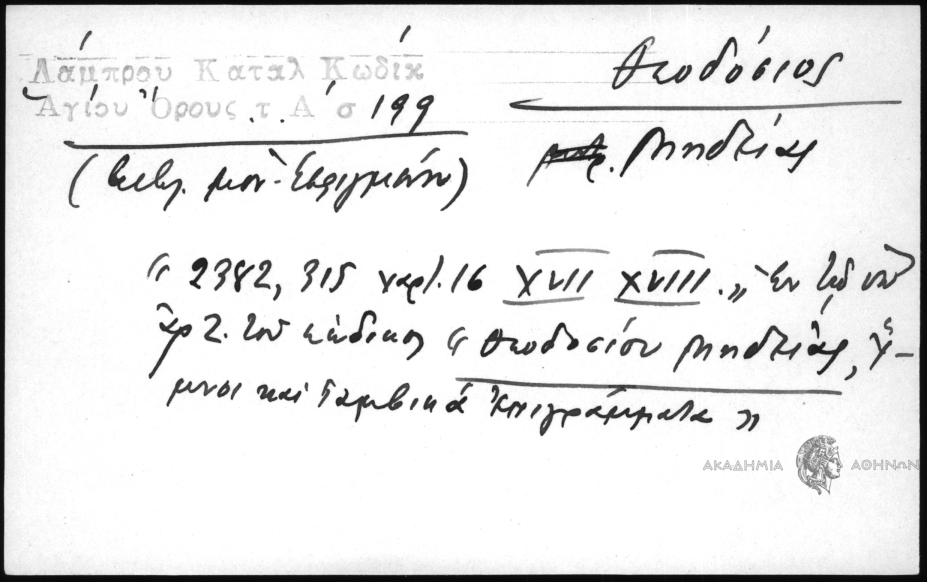 Λάμπρου Καταλ Κωδίκ
Ἁγίου Ὄρους τ. Α σ 199
(βιβλ. μον. Ἐσφιγμένου)
Θεοδόσιος
μηδείας
« 2382, 315 χαρτ. 16 XVII XVIII.„ Ἐν τῷ ὑπ
ἀρ 2. τοῦ κώδικος « Θεοδοσίου μηδείας, ὕ-
μνοι καὶ Ἰαμβικά ἐπιγράμματα »
ΑΚΑΔΗΜΙΑ ΑΘΗΝΩΝ